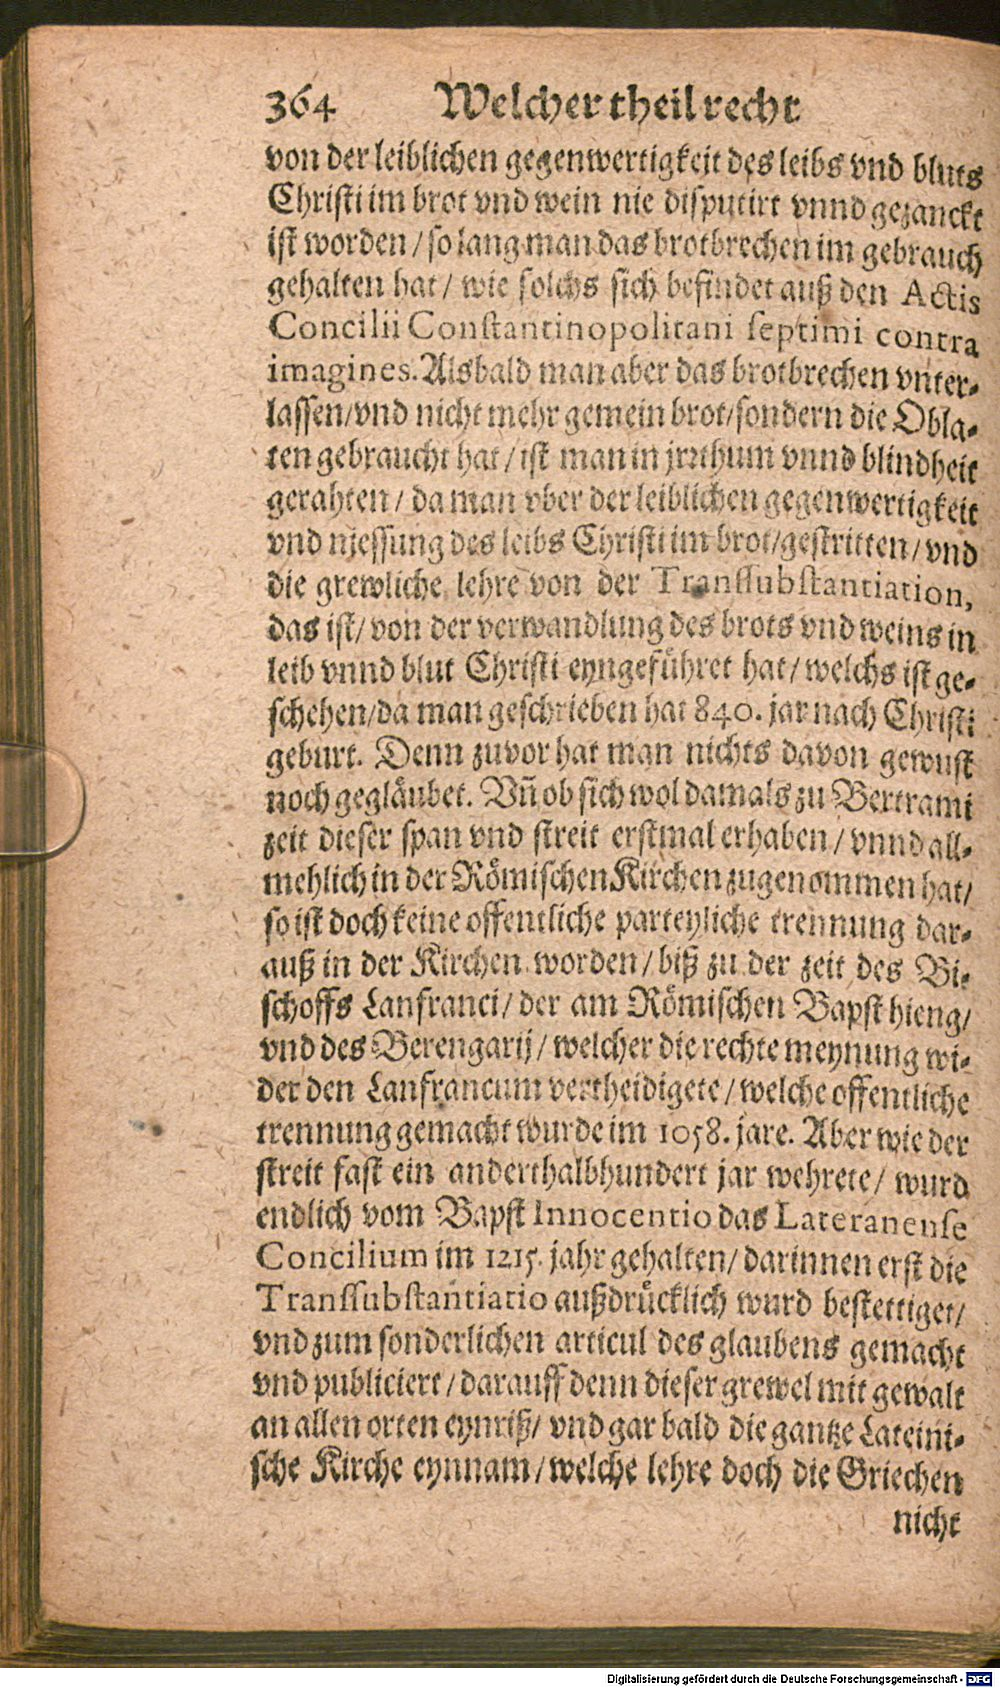 364 Welcher theil recht
von der leiblichen gegenwertigkeit des leibs vnd bluts
Christi im brot vnd wein nie disputirt vnnd gezanckt
ist worden / so lang man das brotbrechen im gebrauch
gehalten hat / wie solchs sich befindet auß den Actis
Concilii Constantinopolitani septimi contra
imagines. Alsbald man aber das brotbrechen vnter-
lassen/vnd nicht mehr gemein brot/sondern die Obla-
ten gebraucht hat / ist man in jrrthum vnnd blindheit
gerahten / da man vber der leiblichen gegenwertigkeit
vnd niessung des leibs Christi im brot/gestritten / vnd
die grewliche lehre von der Transsubstantiation,
das ist/ von der verwandlung des brots vnd weins in
leib vnnd blut Christi eyngeführet hat / welchs ist ge-
schehen/da man geschrieben hat 840. jar nach Christi
geburt. Denn zuvor hat man nichts davon gewust
noch gegläubet. Vñ ob sich wol damals zu Bertrami
zeit dieser span vnd streit erstmal erhaben / vnnd all-
mehlich in der Römischen Kirchen zugenommen hat/
so ist doch keine offentliche parteyliche trennung dar-
auß in der Kirchen worden / biß zu der zeit des Bi-
schoffs Lanfranci / der am Römischen Bapst hieng/
vnd des Berengarij / welcher die rechte meynung wi-
der den Lanfrancum vertheidigete / welche offentliche
trennung gemacht wurde im 1058. jare. Aber wie der
streit fast ein anderthalbhundert jar wehrete / wurd
endlich vom Bapst Innocentio das Lateranense
Concilium im 1215. jahr gehalten / darinnen erst die
Transsubstantiatio außdrücklich wurd bestettiget/
vnd zum sonderlichen articul des glaubens gemacht
vnd publiciert / darauff denn dieser grewel mit gewalt
an allen orten eynriß / vnd gar bald die gantze Lateini-
sche Kirche eynnam / welche lehre doch die Griechen
nicht
Digitalisierung gefördert durch die Deutsche Forschungsgemeinschaft - DFG